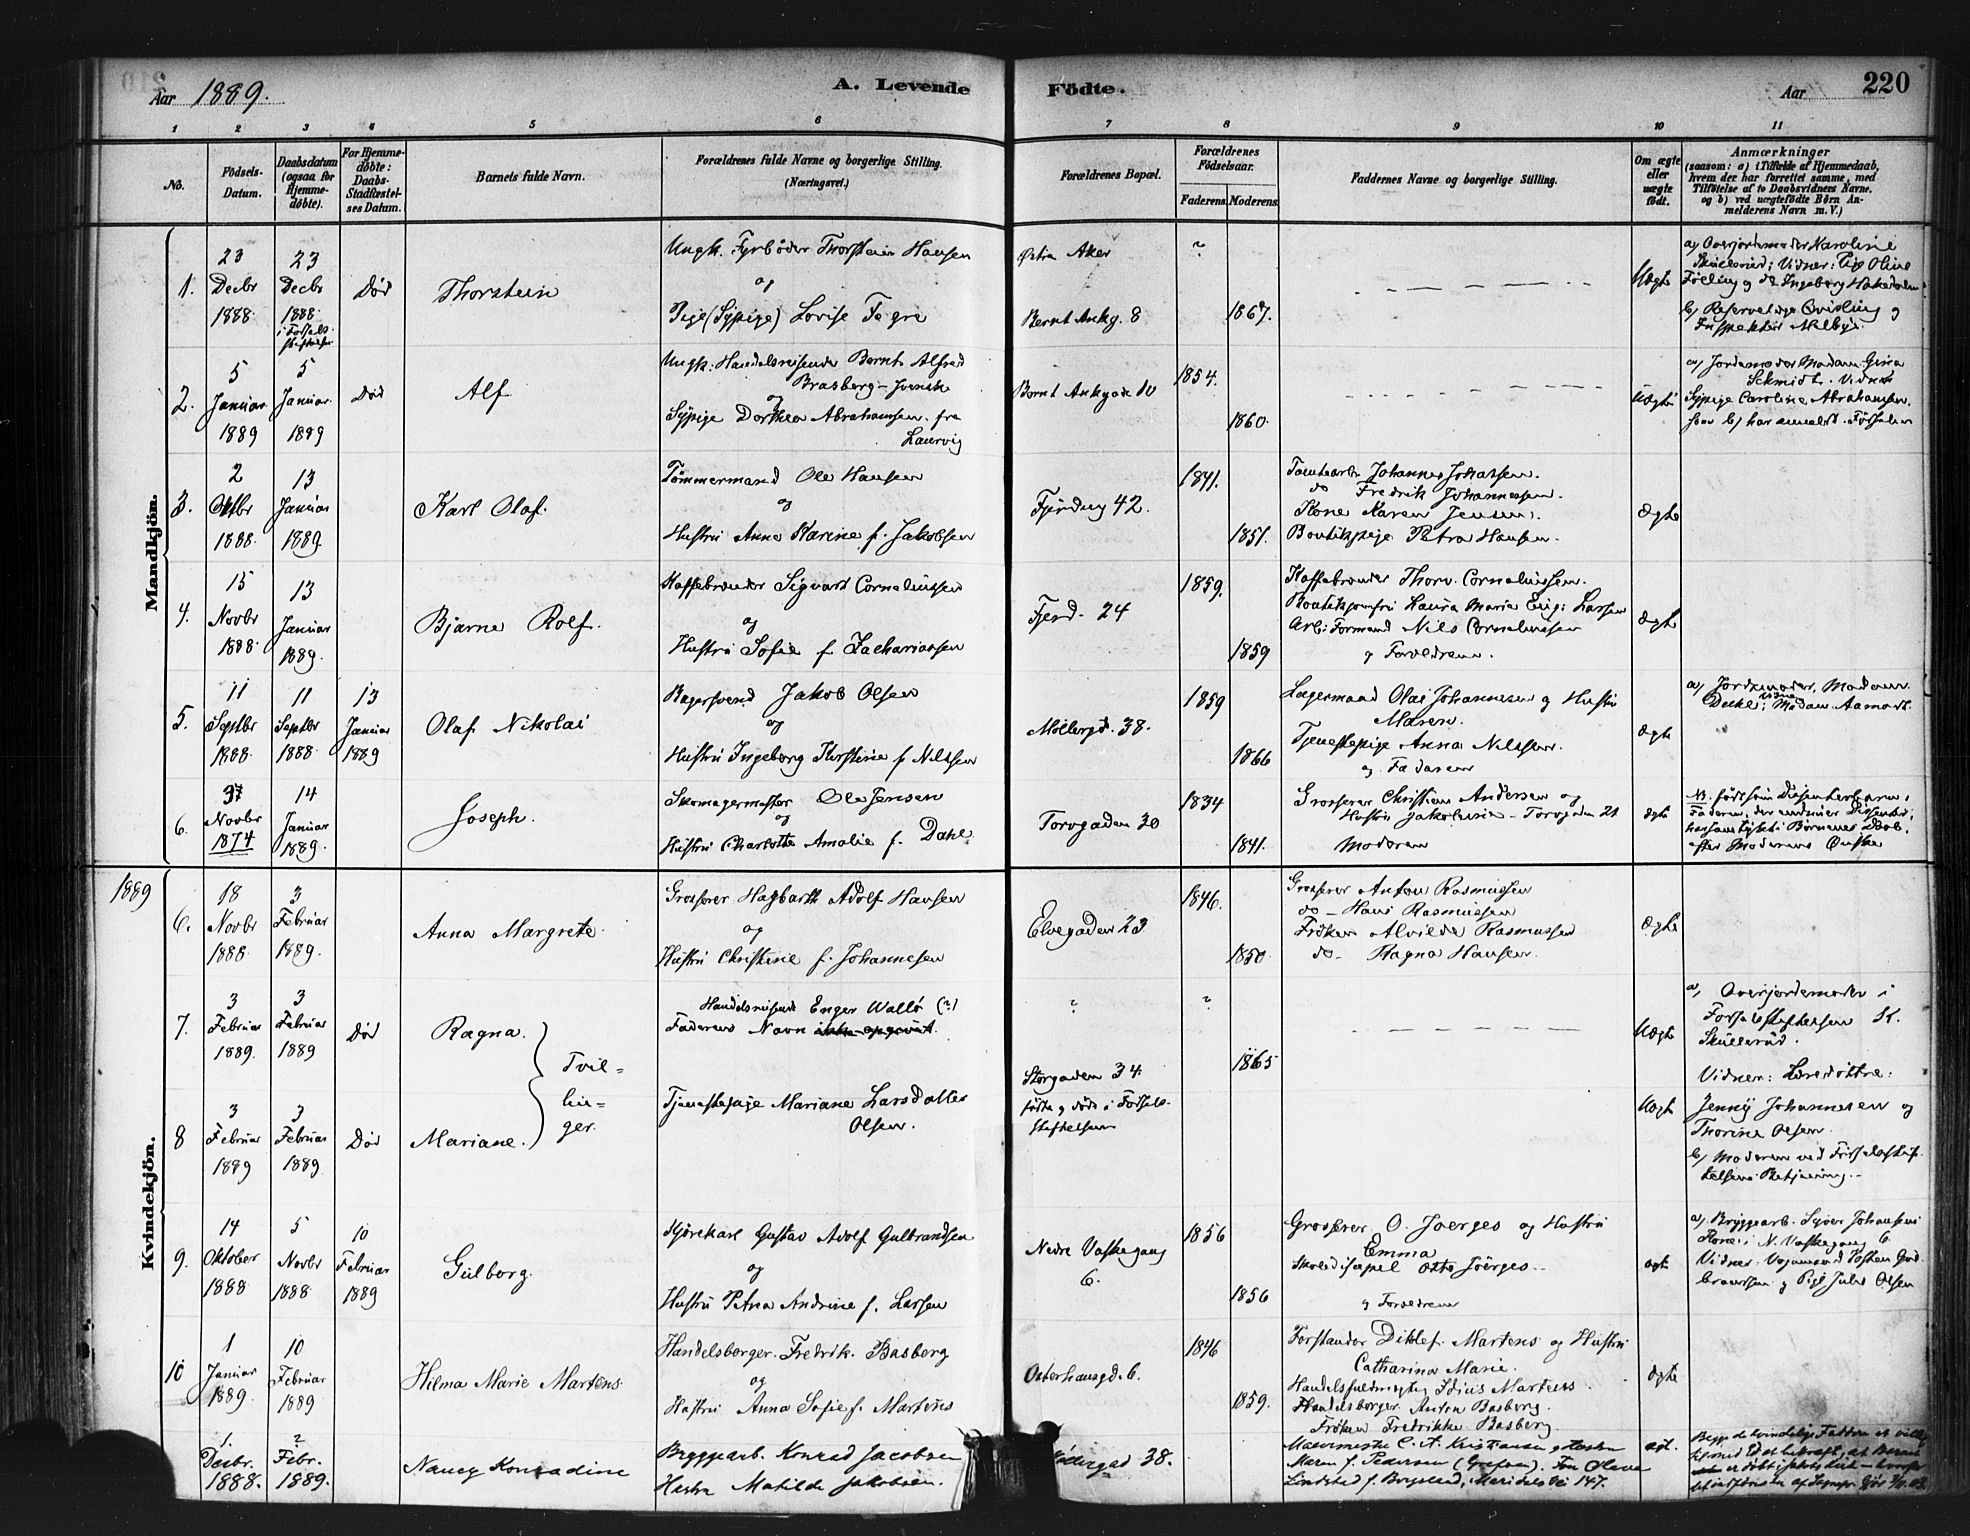 Aar 1889.
A. Levende Födte.
Aar
220
1 2 3 4 5 6 7 8 9 10 11
No.
Födsels-Datum.
Daabsdatum (ogsaa for Hjemmedöbte).
For Hjemmedöbte: Daabs-Stadfæstelses Datum.
Barnets fulde Navn.
Forældrenes fulde Navne og borgerlige Stilling.
(Næringsvei.)
Forældrenes Bopæl.
Forældrenes Födselsaar.
Faderens. Moderens.
Faddernes Navne og borgerlige Stilling.
Om ægte eller uægte födt.
Anmærkninger
(saasom: a) i Tilfælde af Hjemmedaab, hvem der har forrettet samme, med Tilföielse af to Daabsvidners Navne. og b) ved uægtefödte Börn Anmelderens Navn m. V.)
Mandkjön.
1. 23 Decbr 1888
23 Decbr 1888 i Fødselsstiftelsen
Død
Thorstein
Ungk. Fyrbøder Thorstein Hansen
og
Pige (Sypige) Lovise Fagre
Østre Aker
Bernt Ankg. 8
? 1867.
Uægte
a) Overjordemoder Karoline
Skullerud; Vidner: Pige Oline
b) Reservelæge Qvisling og
2. 5 Januar 1889
5 Januar 1889
Død
Alf
Ungk: Handelsreisende Bernt Alfred
Brasberg - Svensk
og
Sypige Dorthea Abrahamsen fra
Laurvig
Bernt Ankgade 10
1854. 1860.
Uægte
a) Jordemoder Madam Gina
Schmidt. Vidner
Sypige Caroline Abrahamsen.
som b) har anmeldt Fødselen
3. 2 Oktbr 1888.
13 Januar 1889.
Karl Olaf.
Tømmermand Ole Hansen
og
Hustru Anna Karine f. Jakobsen
Fjerding 42.
1841. 1851.
do Fredrik Johannessen.
Kone Karen Jensen.
Boutikspige Petra Hansen.
Ægte
4. 15 Novbr 1888.
13 Januar 1889.
Bjarne Rolf.
Kaffebrænder Sigvart Corneliussen
og
Hustru Sofie f. Zachariassen
Fjerd. 24
1859. 1859
Kaffebrænder Thorv. Corneliussen.
Boutiksjomfru Laura Marie Eug: Larsen
Arb: Formand Nils Corneliussen
og Forældrene.
Ægte
5. 11 Septbr 1888.
11 Septbr 1888.
13 Januar 1889
Olaf Nikolai
Bagersvend Jakob Olsen
og
Hustru Ingeborg Kirstine f. Nilssen
Møllergd. 38.
1859 1866
Lagermand Olai Johannesen og Hustru
Maren.
Tjenestepige Anna Nilssen.
og Faderen
Ægte
a) Jordemoder, Madam
6. Novbr 1874
14 Januar 1889.
Joseph.
Skomagermester Ole Jensen
og
Hustru Charlotte Amalie f. Dahl
Torvgaden 30
1834 1841.
Grosserer Christian Andersen og
Hustru Jakobine - Torvgaden 21
Moderen
Ægte
NB. født som Dissenterbarn;
Faderen, der endnu er Dissenter,
har samtykket i Børnenes Daab.
efter Moderens Ønske
Kvindekjön.
1889
6. 18 Novbr 1888.
3 Februar 1889.
Anna Margrete.
Grosserer Hagbarth Adolf Hansen
og
Hustru Christine f. Johannesen
Elvegaden 23
1846. 1850
Grosserer Anton Rasmussen
do - Hans Rasmussen
Frøken Alvilde Rasmussen
do - Ragna Hansen.
Ægte
7. 3 Februar 1889.
3 Februar 1889
Død
Ragna.
Tvillinger.
Handelsreisende Enger Wallø (?)
Faderens Navn ikke opgivet.
? ? 1865
Uægte
a) Overjordemoder i
Fødselsstiftelsen K.
Skullerud.
8 3 Februar 1889
3 Februar 1889.
Død
Mariane.
Tjenestepige Mariane Larsdatter
Olsen.
Storgaden 34.
født og døde i Fødsels-
stiftelsen
Uægt
Vidner:
Jenny Johannesen og
Thorine Olsen.
b) Moderen ved Fødselsstif-
telsens Betjening.
9. 14 Oktober 1888
5 Novbr 1888.
10 Februar 1889
Gulborg.
Kjørekarl Gustav Adolf Gulbrandsen
og
Hustru Petra Andrine f. Larsen
Nedre Vaskegang
6.
1856 1856
Grosserer O. Joerges og Hustru
Emma
Skolediscipel Otto Joerges.
og Forældrene
ægte
a) Bryggearb. Syver Johansens
Kone i N. Vaskegang 6.
10 1 Januar 1889.
10 Februar 1889
Hilma Marie Martens
Handelsborger. Fredrik Basberg
og
Hustru Anna Sofie f. Martens
Osterhausgd. 6.
1846 1859.
Forstander Ditlef Martens og Hustru
Catharina Marie.
Handelsborger Anton Basberg.
Frøken Fredrikke Basberg
Ægte
1. Decbr. 1888.
2 Febr. 1889.
Nancy Konradine
Bryggearb. Konrad Jacobsen
Hustru Matilde Jakobsen.
Møllergad 38.
Murermester C. A. Kristiansen og Hustru
Maren f. Pedersen (Grefsen).
Lindstad f. Bogstad, Maridalsvei 147.
ægt.